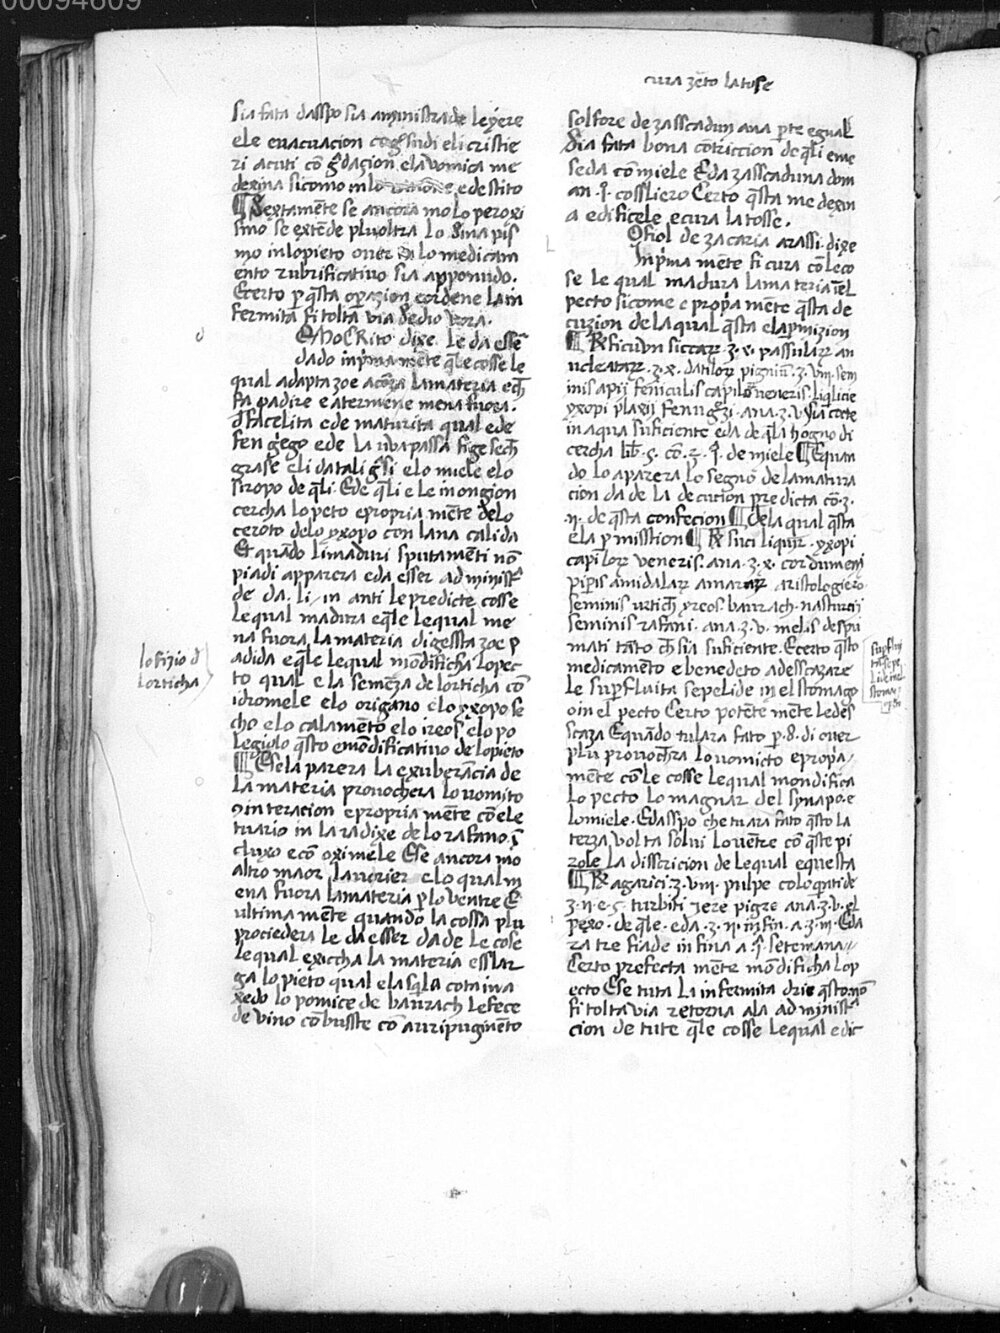 00094609
cura zeto la tose
sia fata dasspo sia aministrade le yere
ele evacuacion cog sindi eli cristie
ri acuti cō gdazion ela vomica me
dexina sicomo in lo e de stito
¶ Sextamēte se ancora molo peroxi
smo se extēde plu oltra lo sinapis
mo in lo pieto over lo medicam
ento rubrificativo sia apponudo.
Ecerto p q̄sta operazion cordene lam
fermita fi tolta via
dixe. Le da essē
dado inp̄ma mēte q̄le cosse le
qual adapta zoe la materia
fa padire e a termene mena fuora.
facelita e de maturita qual e de
fen grego e de la uva passa fige sech
grase eli datali grsi elo miele elo
siropo de q̄li. Ede q̄li e le in ongion
cercha lo peto e propria mēte delo
ceroto delo yxopo con lana calida
E quādo li maduri sputamenti nō
piadi apparera eda esser administ
de da. li in anti le predicte cosse
le qual madura eq̄le lequal me
na fuora la materia digessta zoe p
adida eq̄le lequal mōdificha lo pec
to qual e la semēza de lorticha cō
idromele elo origano elo yxopo se
cho elo calamēto elo ireos elo po
legiolo q̄sto e mōdificativo de lo pieto
¶ Ese la parera la exuberācia de
la materia provochera lo vomito
in teracion e propria mēte cō ele
tuario in la radixe de lo rafano.
e cō oximele Ese ancora mo
altro maor lavorier e lo qual m
ena fuora la materia p lo ventre E
ultima mēte quando la cossa plu
prociedera le da esser dade le cose
le qual exiccha la materia e sslar
ga lo pieto qual e la
xedo lo pomice de baurach le fece
de vino cōbusste cō auripugmēto
lo fizio d
lorticha
solfore de zasscadun ana p̄te egual
Sia fata bona cōtriccion de q̄li e me
seda cō miele Eda zasscaduna dom
an. cossliero Certo q̄sta me dexin
a edificele e cura la tosse.
Ofiol de zacaria arassi. dixe
Inp̄ma mēte fi cura cō leco
se le qual madura la materia
pecto sicome e propria mēte q̄sta de
cuzion de la qual q̄sta e la pmizion
¶ ficuvn siccar. ʒ. x. passular an
nuclatar. ʒ. x. datilor pigniu. ʒ. viii. sem
inis apii feniculis capilo veneris. liq̄licie
yxopi plaxii fenugrzi. ana. ʒ. v. sia cocte
in aqua suficiente eda de q̄la hogno di
cercha lib. 5. cō. de miele ¶ Equan
do lo aparera lo segno de la matura
cion da de la decution predicta cō. ʒ.
.ii. de q̄sta confecion ¶ de la qual q̄sta
e la pmisstion ¶ suci liqur. yxopi
capilor veneris. ana. ʒ. x. cordumeni
pipis amidalar amarar aristologie ro.
seminis urtich yreos. baurach. nasturii
seminis rafani. ana. ʒ. v. melis despu
mati tāto ch sia suficiente. Ecerto q̄sto
medicamēto e benedeto a desscazare
le supfluita sepelide in el stomago
o in el pecto Certo potēte mēte le des
scaza Equādo tu lara fato p. 8. di over
plu provochera lo vomicto e propria
mēte cō le cosse le qual mondifica
lo pecto lo magnar del synapo. e
lo miele. Edasspo che tu ara fato q̄sto la
terza volta solvi lo vētre cō q̄ste pi
zole la disscricion de le qual e questa
¶ agarici. ʒ. viii. pulpe coloq̄ntide
ʒ. turbiti iere pigre ana. ʒ. v. el
pexo. de q̄le. eda. ʒ. ii. infin. a. ʒ. iii. Eda
za tre fiade in fina a. setemana
Certo prefecta mēte mōdificha lo p
ecto Ese tuta la infermita driē q̄sto nō
fi tolta via retorna ala ad minist
cion de tute q̄le cosse le qual edic
supflui
ta sepe
lide in el
stoma